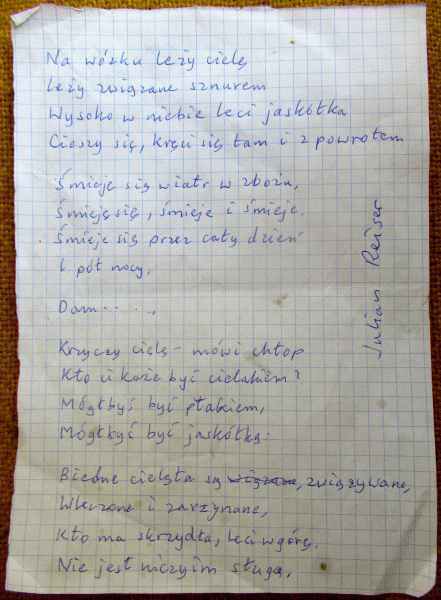 Na wózku leży cielę
Leży związane sznurem
Wysoko w niebie leci jaskółka
Cieszy się, kręci się tam i z powrotem
Śmieje się wiatr w zbożu,
Śmieje się, śmieje i śmieje.
Śmieje się przez cały dzień
I pół nocy.
Dam.....
Krzyczy cielę – mówi chłop
Kto ci każe być cielakiem?
Mógłbyś być ptakiem,
Mógłbyś być jaskółką.
Biedne cielęta są wiązane, związywane,
Wleczone i zarzynane,
Kto ma skrzydła, leci w górę,
Nie jest niczyim sługą.
Julian Reiser